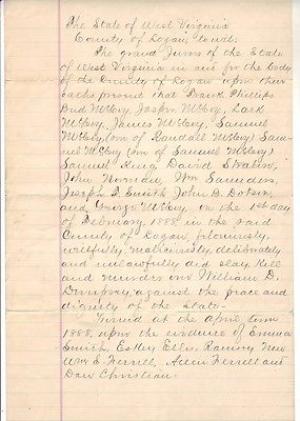 The State of West Virginia
County of Logan, to wit:
The grand Jurors of the State
of West Virginia in and for the body
of the County of Logan upon their
oaths present that Frank Phillips
Bud McCoy, Jasper McCoy, Lark
McCoy, James McCoy, Samuel
McCoy (son of Randall McCoy) Sam-
uel McCoy (son of Samuel McCoy)
Samuel King David Stratin,
John Norman, Wm Saunders,
Joseph F. Smith John B. Dotson,
and George McCoy, on the 1st day
of February 1888 in the said
County of Logan, feloniously,
willfully, maliciously, deliberately
and unlawfully did slay, kill
and murder one William D.
Dempsey, against the peace and
dignity of the State.
Found at the April term
1888, upon the evidence of Emma
Smith, Estley Ellis, New
Wm E. Ferrell, Allen Ferrell and
Dave Christian.